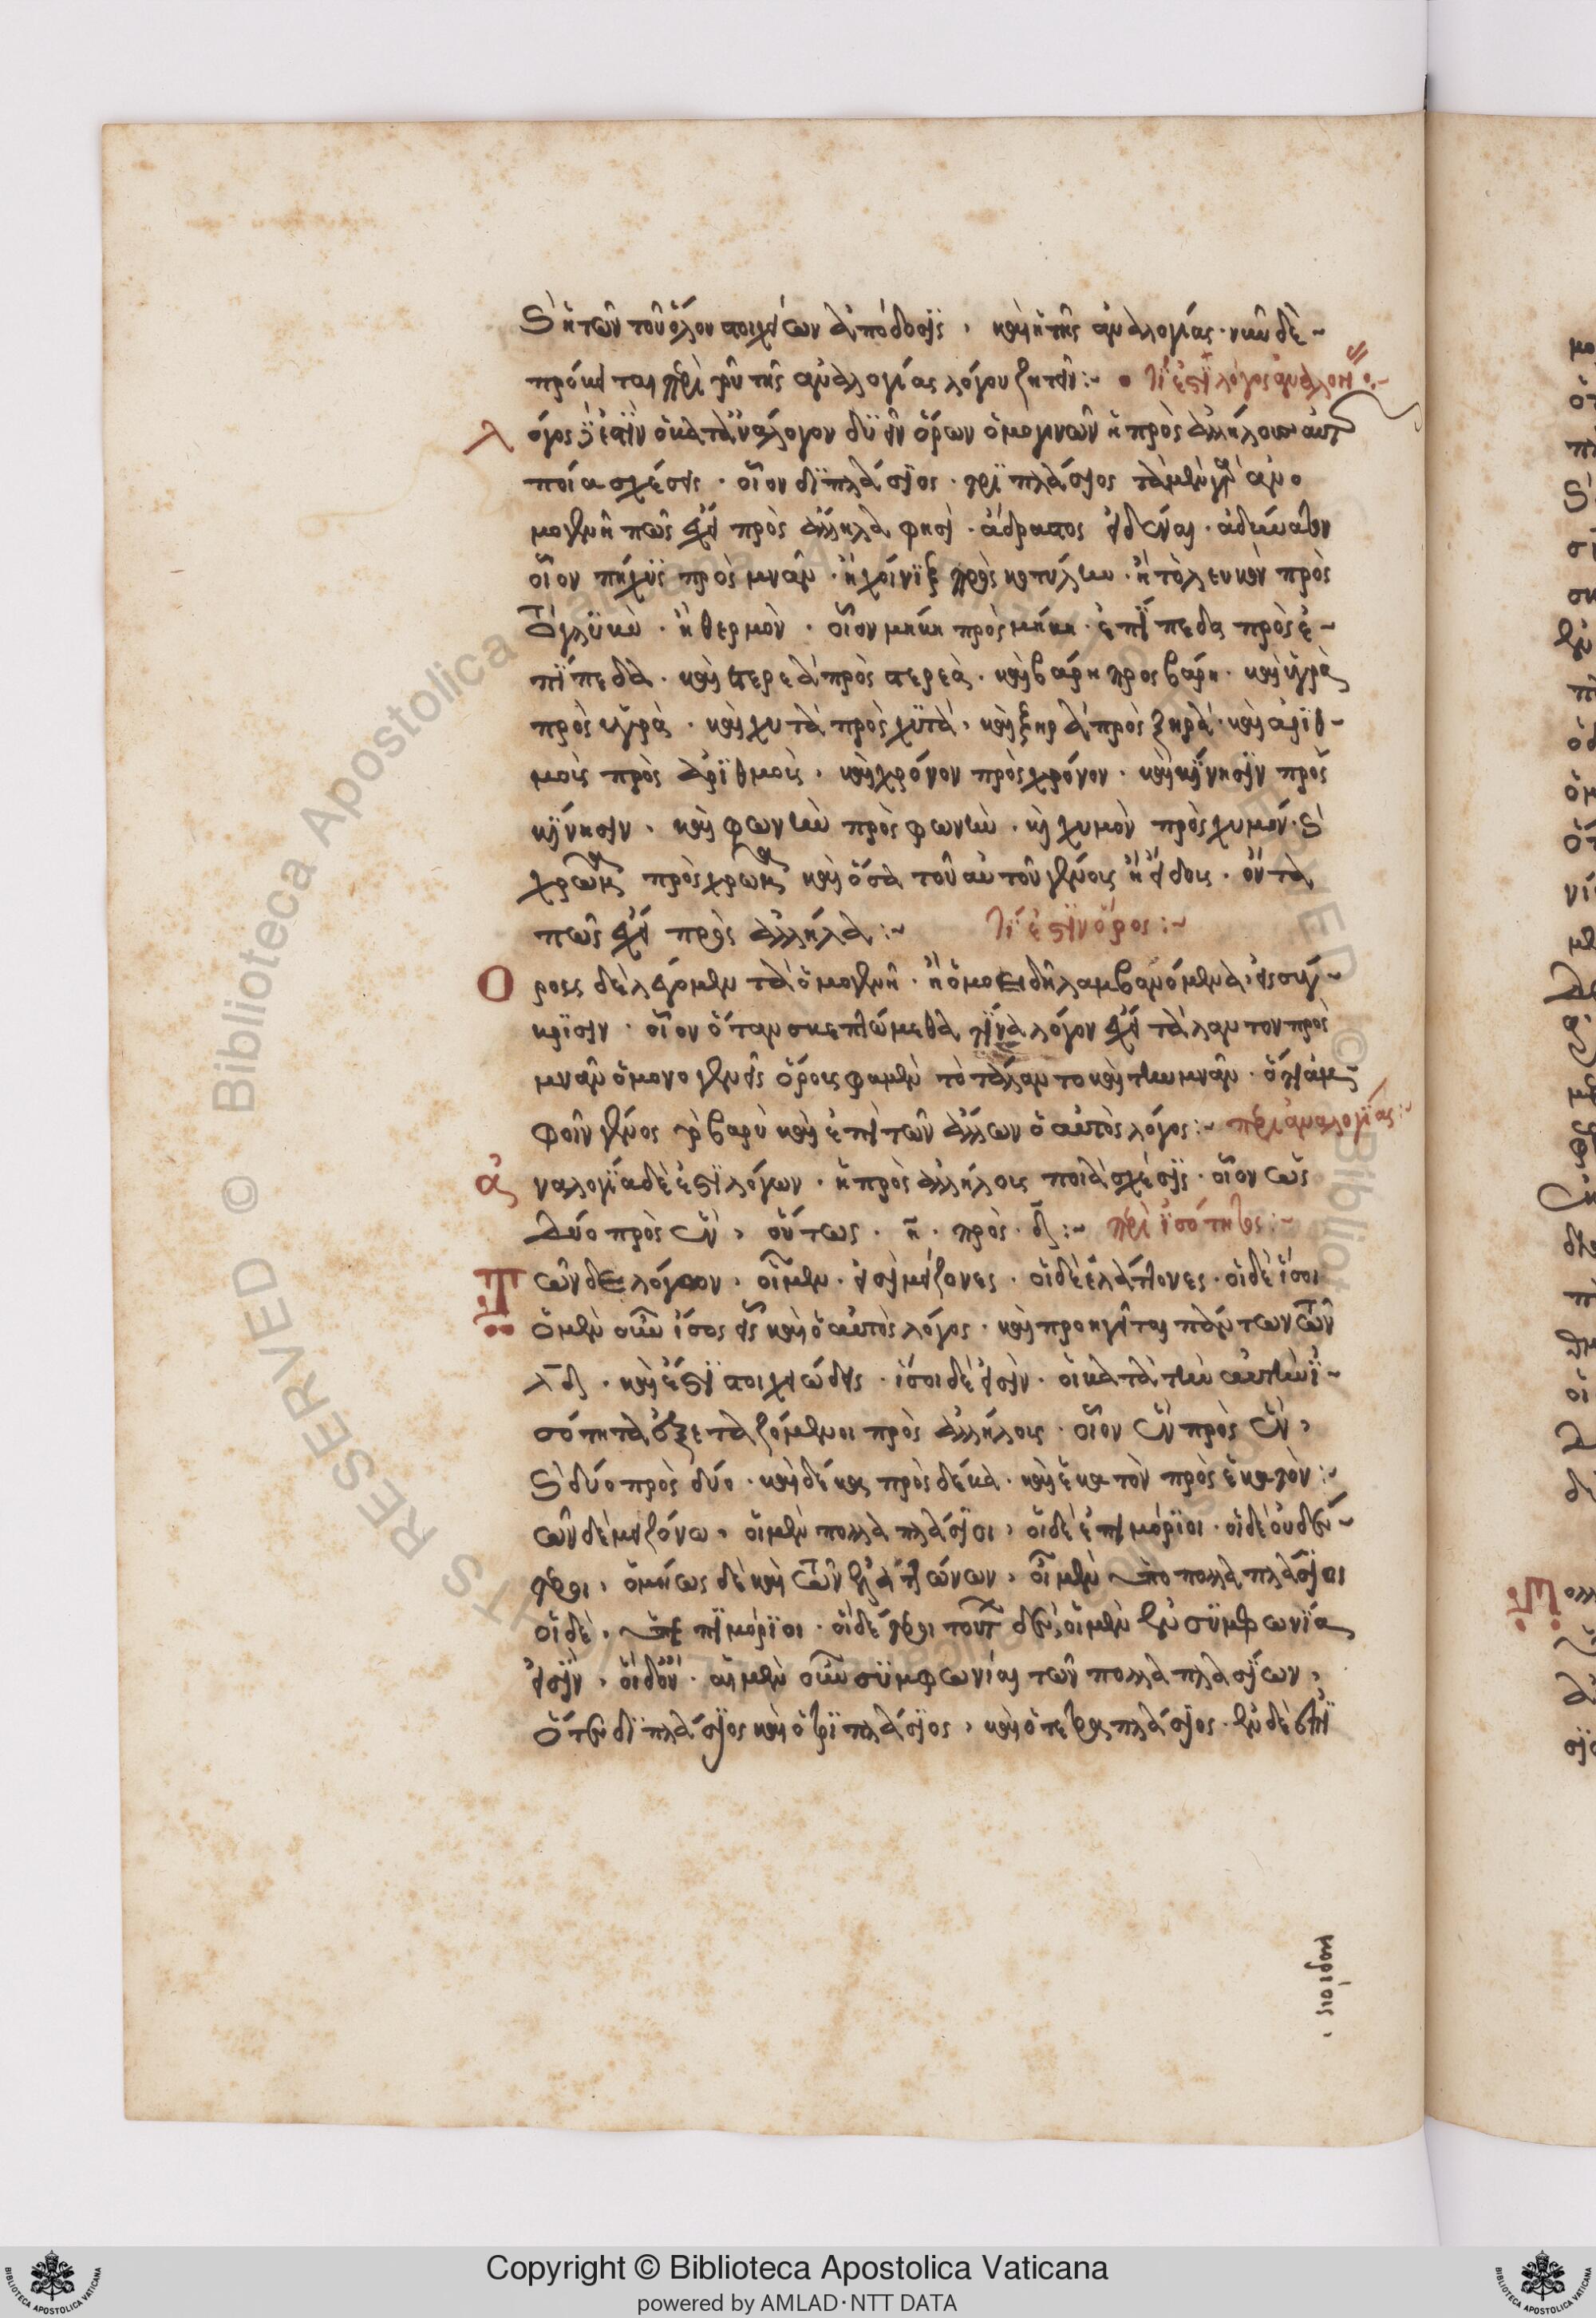 καὶ ἡ τῶν τοῦ ὅλου στοιχείων ἀπόδοσϊς, καὶ ἡ τῆς ἀναλογίας· νῦν δὲ
πρόκειται περὶ τοῦ τῆς ἀναλογίας λόγου ζητεῖν :~ τί ἐστϊ λόγος ἀνάλογ
λόγος ἐστὶν ὁ κατανάλογον δυεῖν ὅρων ὁμογενῶν ἡ πρὸς ἀλλήλους αὐτ
ποία σχέσις· οἷον διπλάσϊος· τρϊπλάσϊος τὰ μὲν γὰρ ἀνο
μογενῆ πῶς ἔχει πρὸς ἄλληλα φησὶ· ἄδραστος εἰδέναι· ἀδύνατον
οἷον πῆχυς πρὸς μνᾶν· ἢ χοίνιξ πρὸς κοτύλην· ἢ τὸ λευκὸν πρὸς
τὸ γλυκὺ· ἢ θερμὸν· οἷον μήκη πρὸς μήκη· ἐπίπεδα πρὸς ἐ-
πίπεδα· καὶ στερεὰ πρὸς στερεὰ· καὶ βάρη πρὸς βάρη· καὶ ὑγρὰ
πρὸς ὑγρὰ· καὶ χυτὰ πρὸς χυτὰ, καὶ ξηρὰ πρὸς ξηρὰ· καὶ ἀριθ-
μοὺς πρὸς ἀριθμοὺς, καὶ χρόνον πρὸς χρόνον· καὶ κίνησϊν πρὸς
κίνησιν, καὶ φωνὴν πρὸς φωνὴν· καὶ χυμὸν πρὸς χυμόν· καὶ
χρῶμα πρὸς χρῶμα καὶ ὅσα τοῦ αὐτοῦ γένους ἢ εἴδους· ὄντα
πῶς ἔχει πρὸς ἄλληλα :~ τί ἐστὶν ὅρος :~
Ορους δὲ λέγομεν τὰ ὁμογενῆ· ἢ ὁμοειδῆ λαμβανόμενα, εἰς σύγ-
κρϊσιν· οἷον ὅταν σκεπτώμεθα τίνα λόγον ἔχει τάλαντον πρὸς
μνᾶν ὁμογενεῖς ὅρους φαμὲν τὸ τάλαντο καὶ τὴν μνᾶν· ὅτι ἀμ
φοῖν γένος τὸ βαρὺ καὶ ἐπὶ τῶν ἄλλων ὁ αὐτὸς λόγος :~ περὶ ἀναλογίας :~
ἀναλογία δέ ἐστϊ λόγων· ἡ πρὸς ἀλλήλους ποιὰ σχέσϊς· οἷον ὡς
δύο πρὸς ἓν, οὕτως· η· πρὸς· δ :~ περὶ ϊσότητος :~
Τῶν δὲ λόγων, οἱ μὲν· εἰσὶ μείζονες· οἱ δὲ ἐλάττονες· οἱ δὲ ἴσοι
ὁ μὲν οὖν ἴσος εἷς καὶ ὁ αὐτὸς λόγος· καὶ προηγεῖται πάντων τῶν
λδ· καὶ ἔστϊ στοιχειώδης· ἴσοι δέ εἰσϊν· οἱ κατὰ τὴν αὐτὴν ϊ-
σότητα ἐξεταζόμενοι πρὸς ἀλλήλους· οἷον ἓν πρὸς ἓν,
καὶ δύο πρὸς δύο· καὶ δέκα πρὸς δέκα· καὶ ἑκατὸν πρὸς ἑκατὸν :~
τῶν δὲ μειζόνω, οἱ μὲν πολλαπλάσϊοι, οἱ δὲ ἐπιμόριοι· οἱ δὲ οὐδέ-
τεροι, ὁμοίως δὲ καὶ τῶν ἐλαττώνων, οἱ μὲν ὑποπολλαπλάσϊοι
οἱ δὲ, ὑπεπιμόρϊοι· οἱ δέ τεροι τούτ δὲ, οἱ μὲν ἐν συμφωνία
εἰσϊν, οἱ δοὔ· αἱ μὲν οὖν συμφωνίαι τῶν πολλαπλασϊων,
ὅ τε διπλάσϊος καὶ ὁ τριπλάσϊος, καὶ ὁ τετραπλάσϊος· ἐν δὲ ἐπϊ
μορίοις,